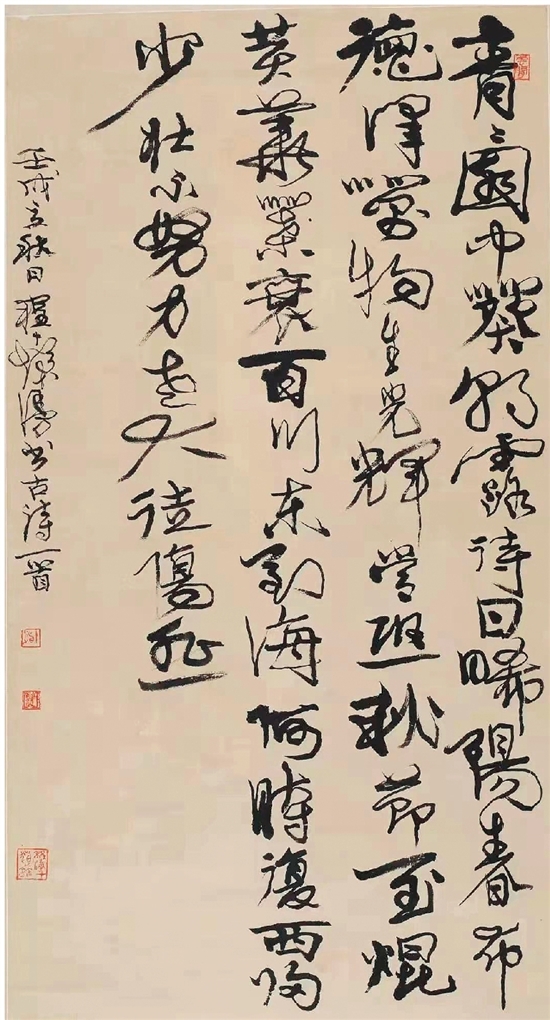 青〻園中葵朝露待日晞陽春布
德澤萬物生光輝常恐秋節至焜
黃華葉衰百川東到海何時復西歸
少壯不努力老大徒傷悲
壬戌立秋日書古詩一首